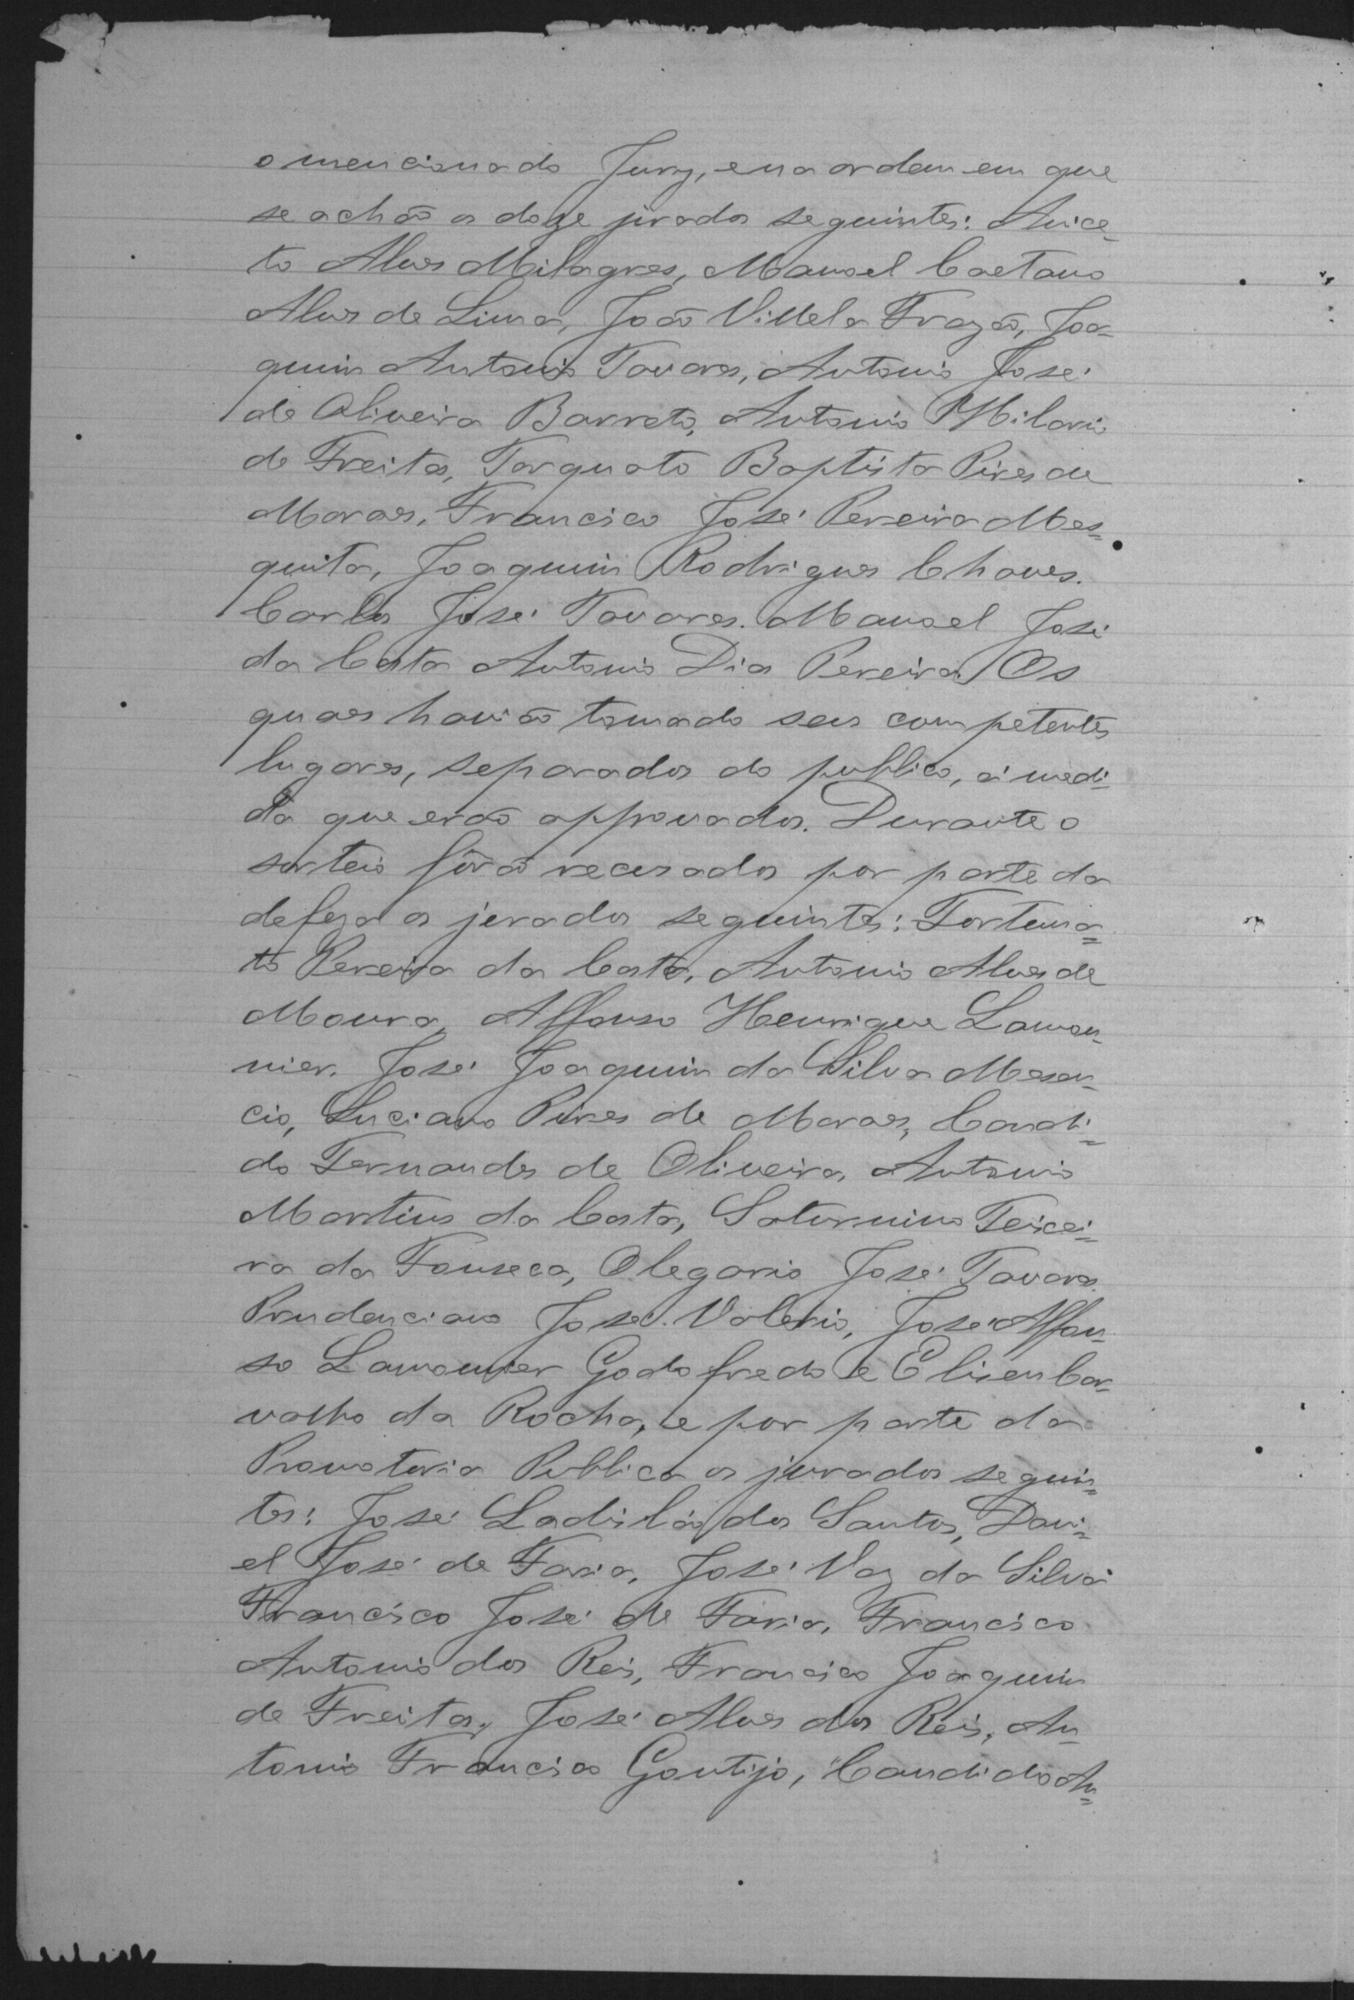 o mencionado Jury, e na ordem em que
se achão os doze jurados seguintes: Anice-
to Alves Milagres, Manoel Caetano
Alves de Lima, João Villela Frazão, Joa-
quim Antonio Tavares, Antonio José
de Oliveira Barreto, Antonio Hilario
de Freitas, Torquato Baptista Pires de
Moraes, Francisco José Pereira Mes=
quita, Joaquim Rodrigues Chaves.
Carlos José Tavares. Manoel José
da Costa Antonio Dias Pereira. Os
quaes havião tomado seus competentes
lugares, separados do publico, á medi-
da que erão approvados. Durante o
sorteio fôrão recusados por parte da
defeza os jurados seguintes: Fortuna=
to Pereira da Costa, Antonio Alves de
Moura, Affonso Henrique Lamou-
nier. José Joaquim da Silva Mesen-
cio, Luciano Pires de Moraes, Candi=
do Fernandes de Oliveira, Antonio
Martins da Costa, Saturnino Teixei=
ra da Fonseca, Olegario José Tavares
Prudenciano José Valerio, José Affon-
so Lamounier Godofredo e Elizen Car-
valho da Rocha, e por parte da
Promotoria Publica os jurados seguin=
tes: José Ladisláo dos Santos, Dani=
el José de Faria, José Vaz da Silva
Francisco José de Faria, Francisco
Antonio dos Reis, Francisco Joaquim
de Freitas, José Alves dos Reis, An
tonio Francisco Gontijo, Candido An=